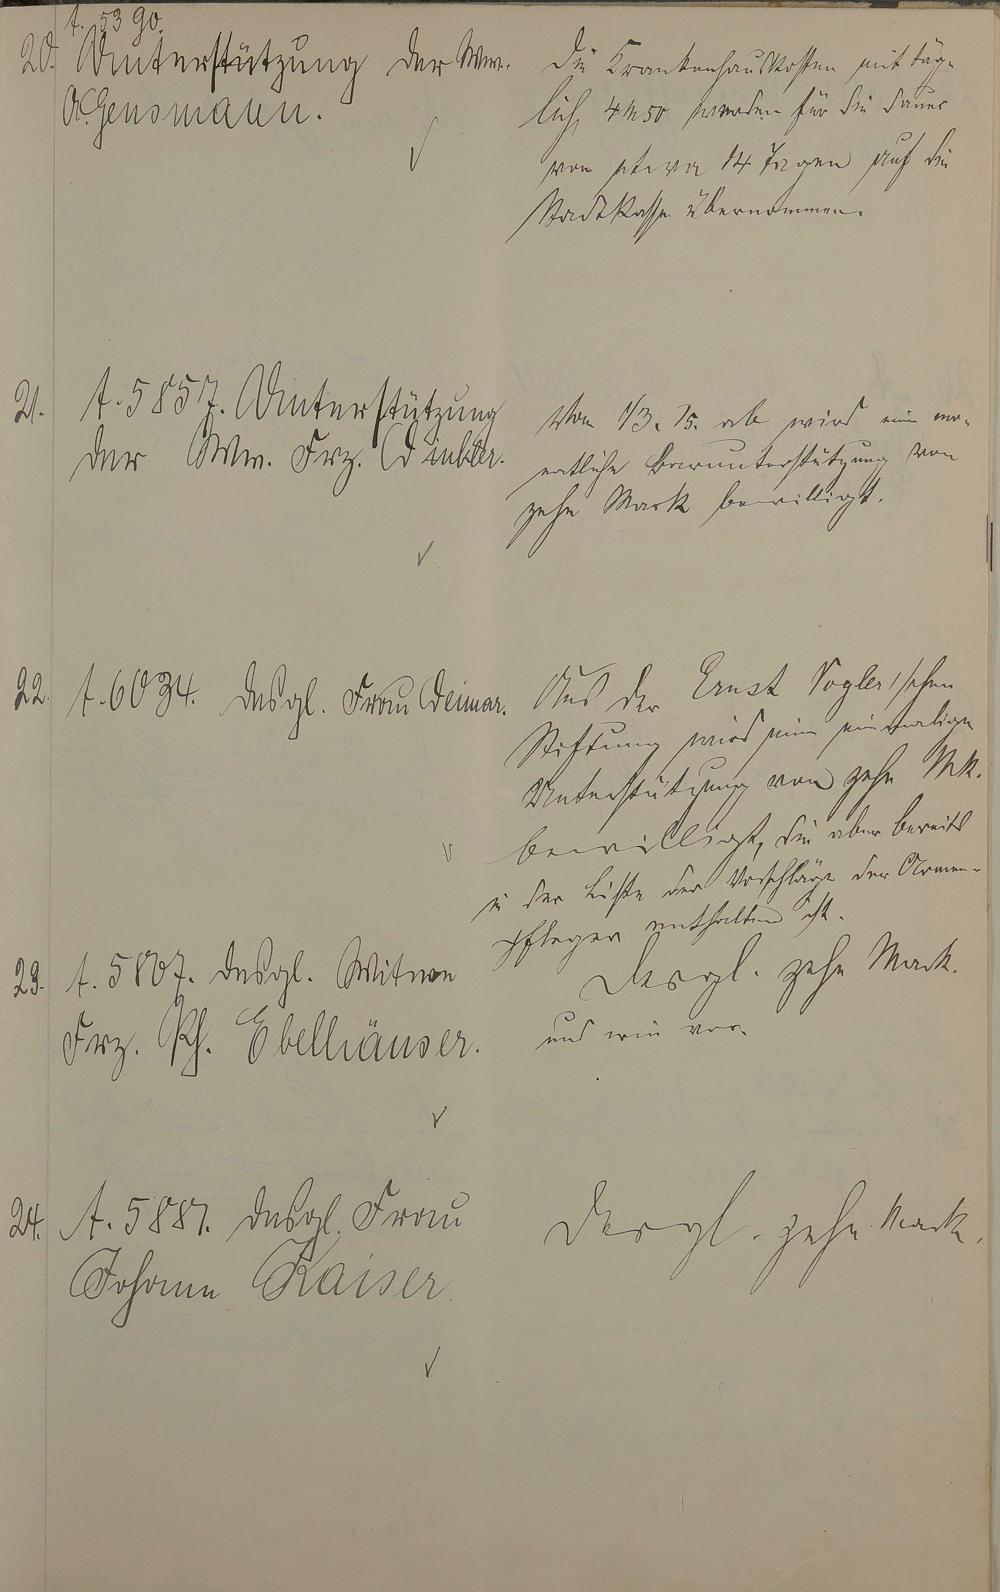 t. 5390.
20. Unterstützung der Wwe.
A. Gensmann.
Die Krankenhauskosten mit täg-
lich 4 M 50 werden für die Dauer
von etwa 14 Tagen auf die
Stadtkasse übernommen.
21. t. 5857. Unterstützung
der Ww. Frz.
Vom 1/3. 15. ab wird eine mo-
natliche Barunterstützung von
zehn Mark bewilligt.
22. t. 6034. Desgl. Frau Deimar.
Aus der Ernst Vogler'schen
Stiftung wird eine einmalige
Unterstützung von zehn Mk.
bewilligt, die aber bereits
in der Liste der Vorschläge der Armen-
pfleger enthalten ist.
23. t. 5807. Desgl. Witwe
Frz. Ph. Ebelhäuser.
Desgl. zehn Mark.
und wie vor.
24. t. 5887. Desgl. Frau
Johann Kaiser.
Desgl. zehn Mark.